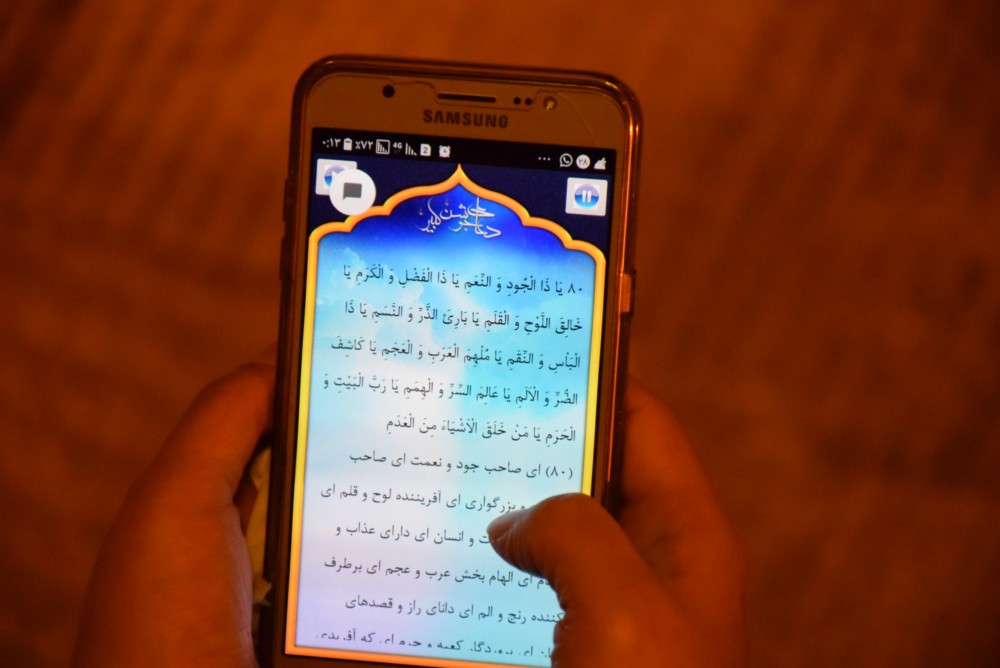 SAMSUNG
۰:۱۳ ٪۷۲ 4G 2 ... ۲۸
دعای جوشن کبیر
۸۰ یَا ذَا الْجُودِ وَ النِّعَمِ یَا ذَا الْفَضْلِ وَ الْكَرَمِ یَا
خَالِقَ اللَّوْحِ وَ الْقَلَمِ یَا بَارِئَ الذَّرِّ وَ النَّسَمِ یَا ذَا
الْبَأْسِ وَ النِّقَمِ یَا مُلْهِمَ الْعَرَبِ وَ الْعَجَمِ یَا كَاشِفَ
الضُّرِّ وَ الْأَلَمِ یَا عَالِمَ السِّرِّ وَ الْهِمَمِ یَا رَبَّ الْبَیْتِ وَ
الْحَرَمِ یَا مَنْ خَلَقَ الْأَشْیَاءَ مِنَ الْعَدَمِ
(۸۰) ای صاحب جود و نعمت ای صاحب
و بزرگواری ای آفریننده لوح و قلم ای
و انسان ای دارای عذاب و
ای الهام بخش عرب و عجم ای برطرف
کننده رنج و الم ای دانای راز و قصدهای
ای پروردگار کعبه و حرم ای که آفریدی